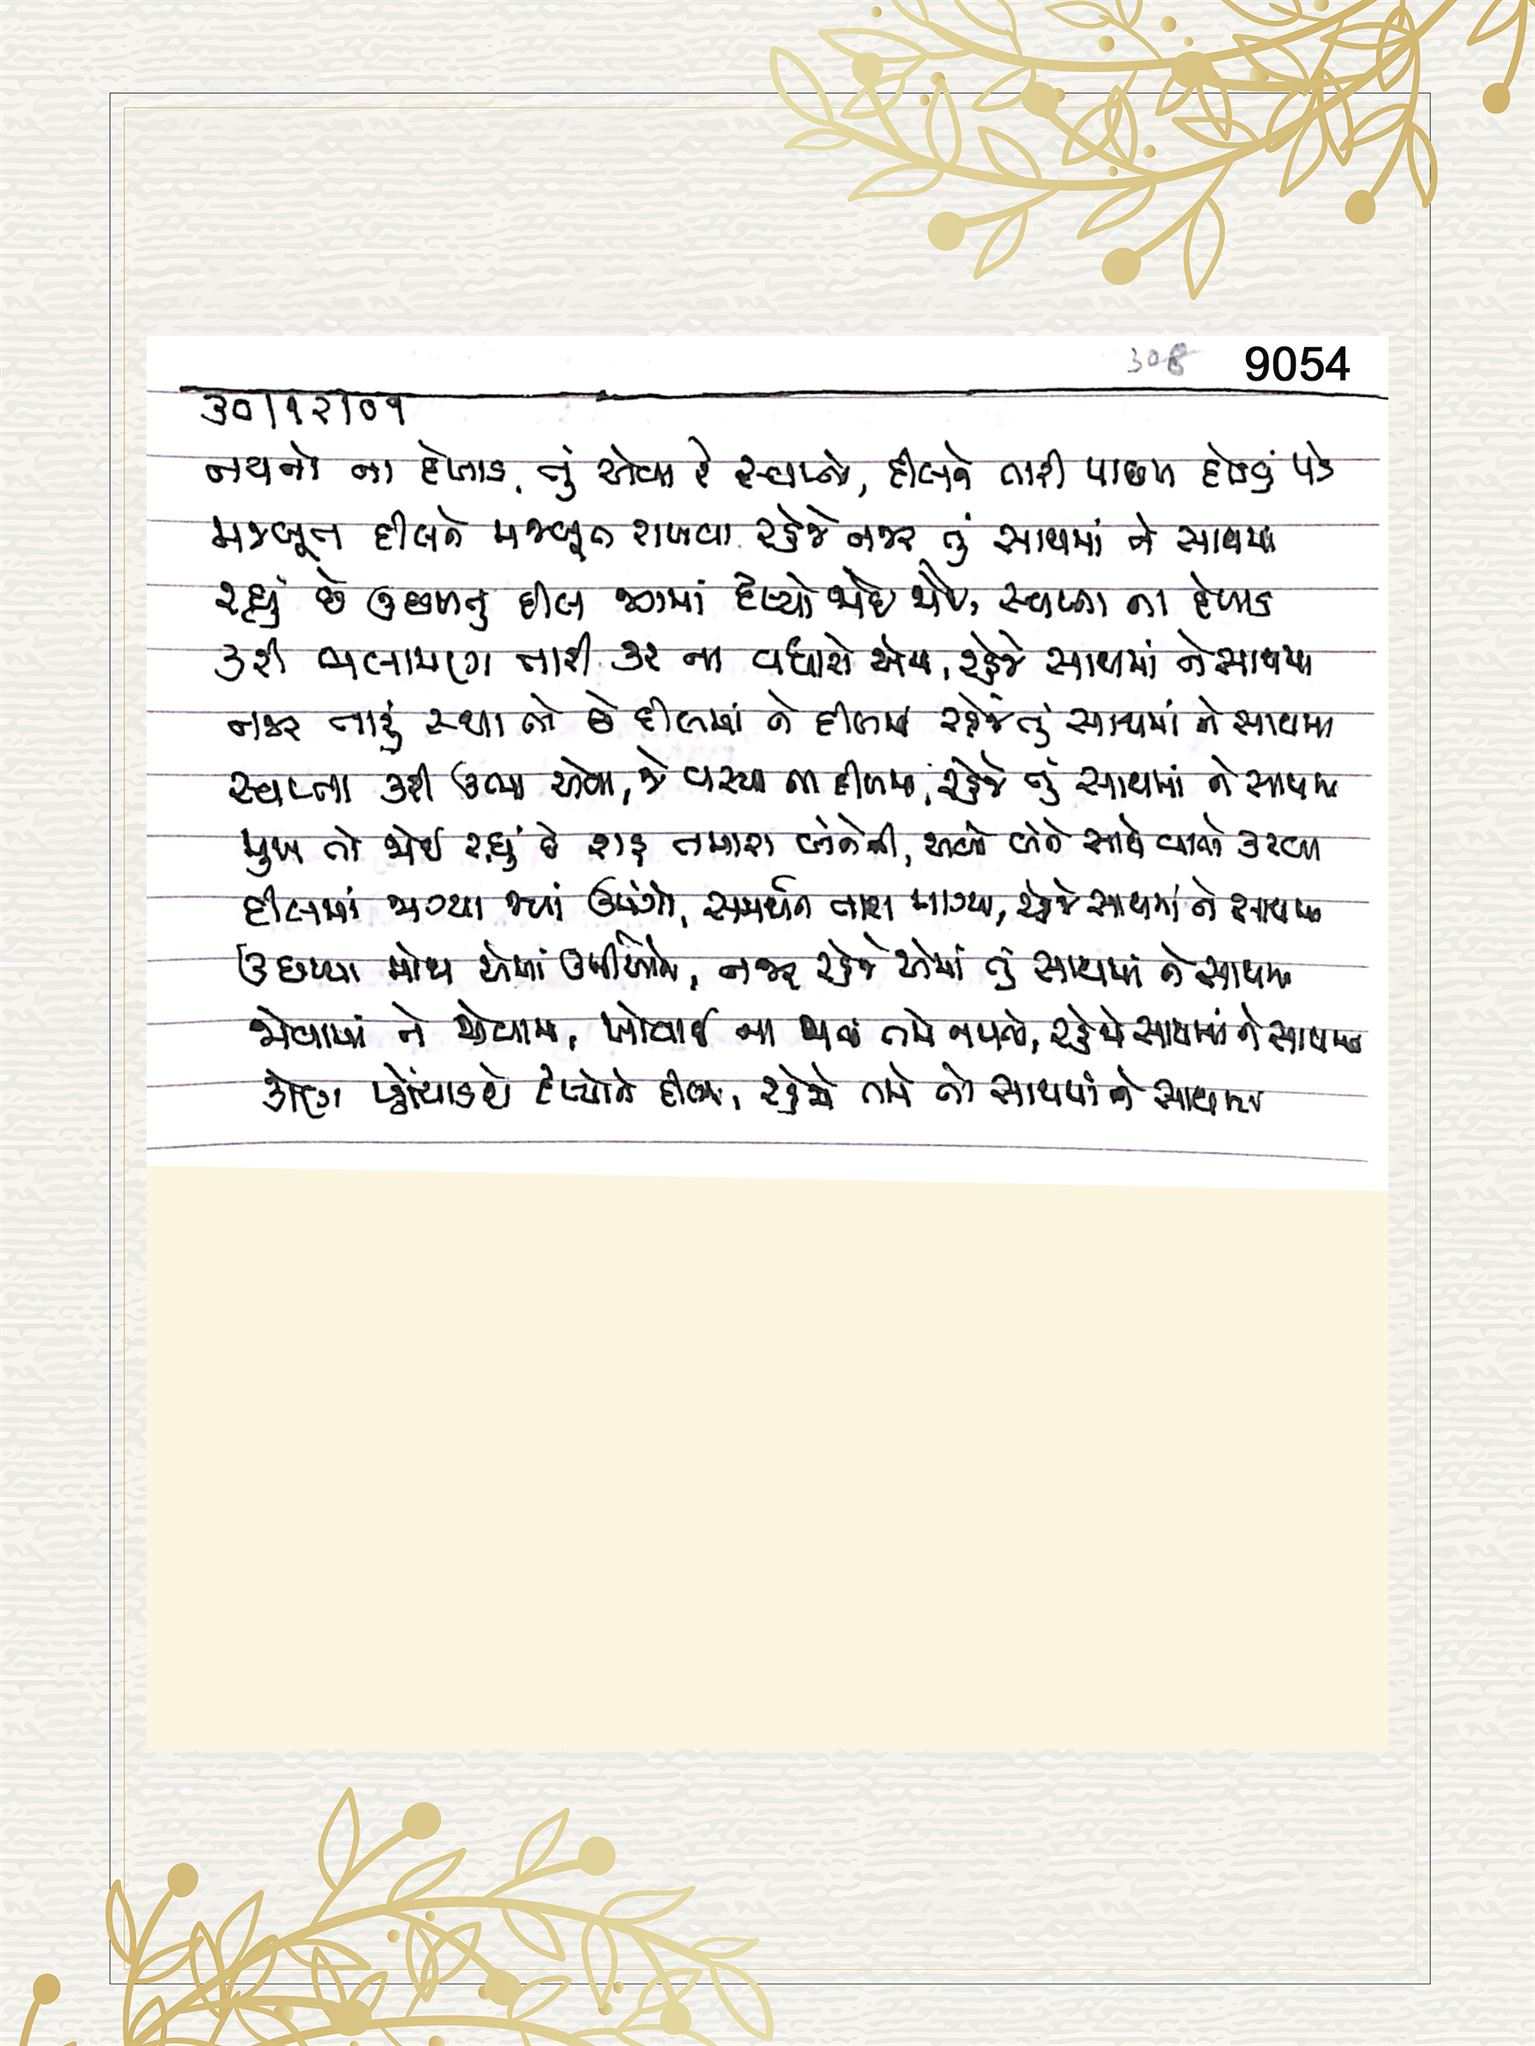 308 9054
૩૦/૧૨/૦૧
નયનો ના દેખાડ તું એવા રે સ્વપ્નો, દીલને તારી પાછળ દોડવું પડે
મજબૂત દીલને મજબૂત રાખવા રહેજે નજર તું સાથમાં ને સાથમાં
રહ્યું છે ઉછળતું દીલ જગમાં દૃશ્યો જોઈ જોઈ, સ્વપ્ના ના દેખાડ
કરી ભલામણ તારી કદર ના વધારો એમ, રહેજે સાથમાં ને સાથમાં
નજર તારું સ્થાન તો છે દીલમાં ને દીલમાં રહેજે તું સાથમાં ને સાથમાં
સ્વપ્ના કરી ઉભા એવા, જે વસ્યા ના દીલમાં, રહેજે તું સાથમાં ને સાથમાં
મુખ તો જોઈ રહ્યું છે રાહ તમારા બંનેની, બંને સાથે વાતો કરવા
દીલમાં જાગ્યા જ્યાં ઉમંગો, સમર્થન તારા માગ્યા, રહેજે સાથમાં ને સાથમાં
ઉછળ્યા મોજા એમાં ઉર્મીઓના, નજર રહેજે એમાં તું સાથમાં ને સાથમાં
જોવામાં ને જોવામાં, ખોવાઈ ના જતાં તમે નયનો, રહેજો સાથમાં ને સાથમાં
કોણ પહોંચાડશે દૃશ્યોને દીલમાં, રહેજો તમે તો સાથમાં ને સાથમાં